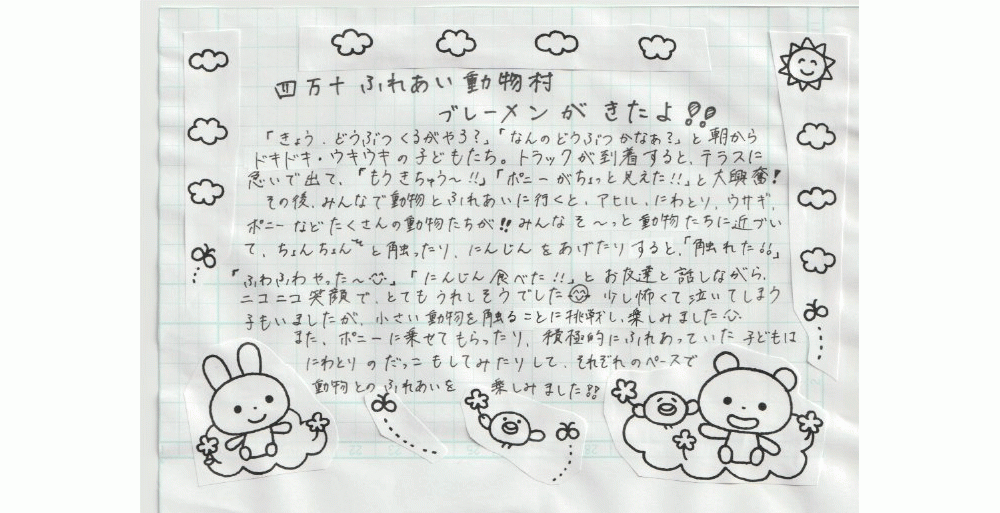 四万十ふれあい動物村
ブレーメンがきたよ!!
「きょう、どうぶつくるがやろ？」「なんのどうぶつかなぁ？」と朝から
ドキドキ・ウキウキの子どもたち。トラックが到着すると、テラスに
急いで出て、「もうきちゅう～!!」「ポニーがちょっと見えた!!」と大興奮!
その後、みんなで動物とふれあいに行くと、アヒル、にわとり、ウサギ、
ポニーなどたくさんの動物たちが!!みんなそ～っと動物たちに近づい
て、ちょんちょんと触ったり、にんじんをあげたりすると、「触れた!!」
「ふわふわやった～」、「にんじん食べた!!」とお友達と話しながら、
ニコニコ笑顔で、とてもうれしそうでした 少し怖くて泣いてしまう
子もいましたが、小さい動物を触ることに挑戦し、楽しみました
また、ポニーに乗せてもらったり、積極的にふれあっていた子どもは
にわとりのだっこもしてみたりして、それぞれのペースで
動物とのふれあいを 楽しみました!!